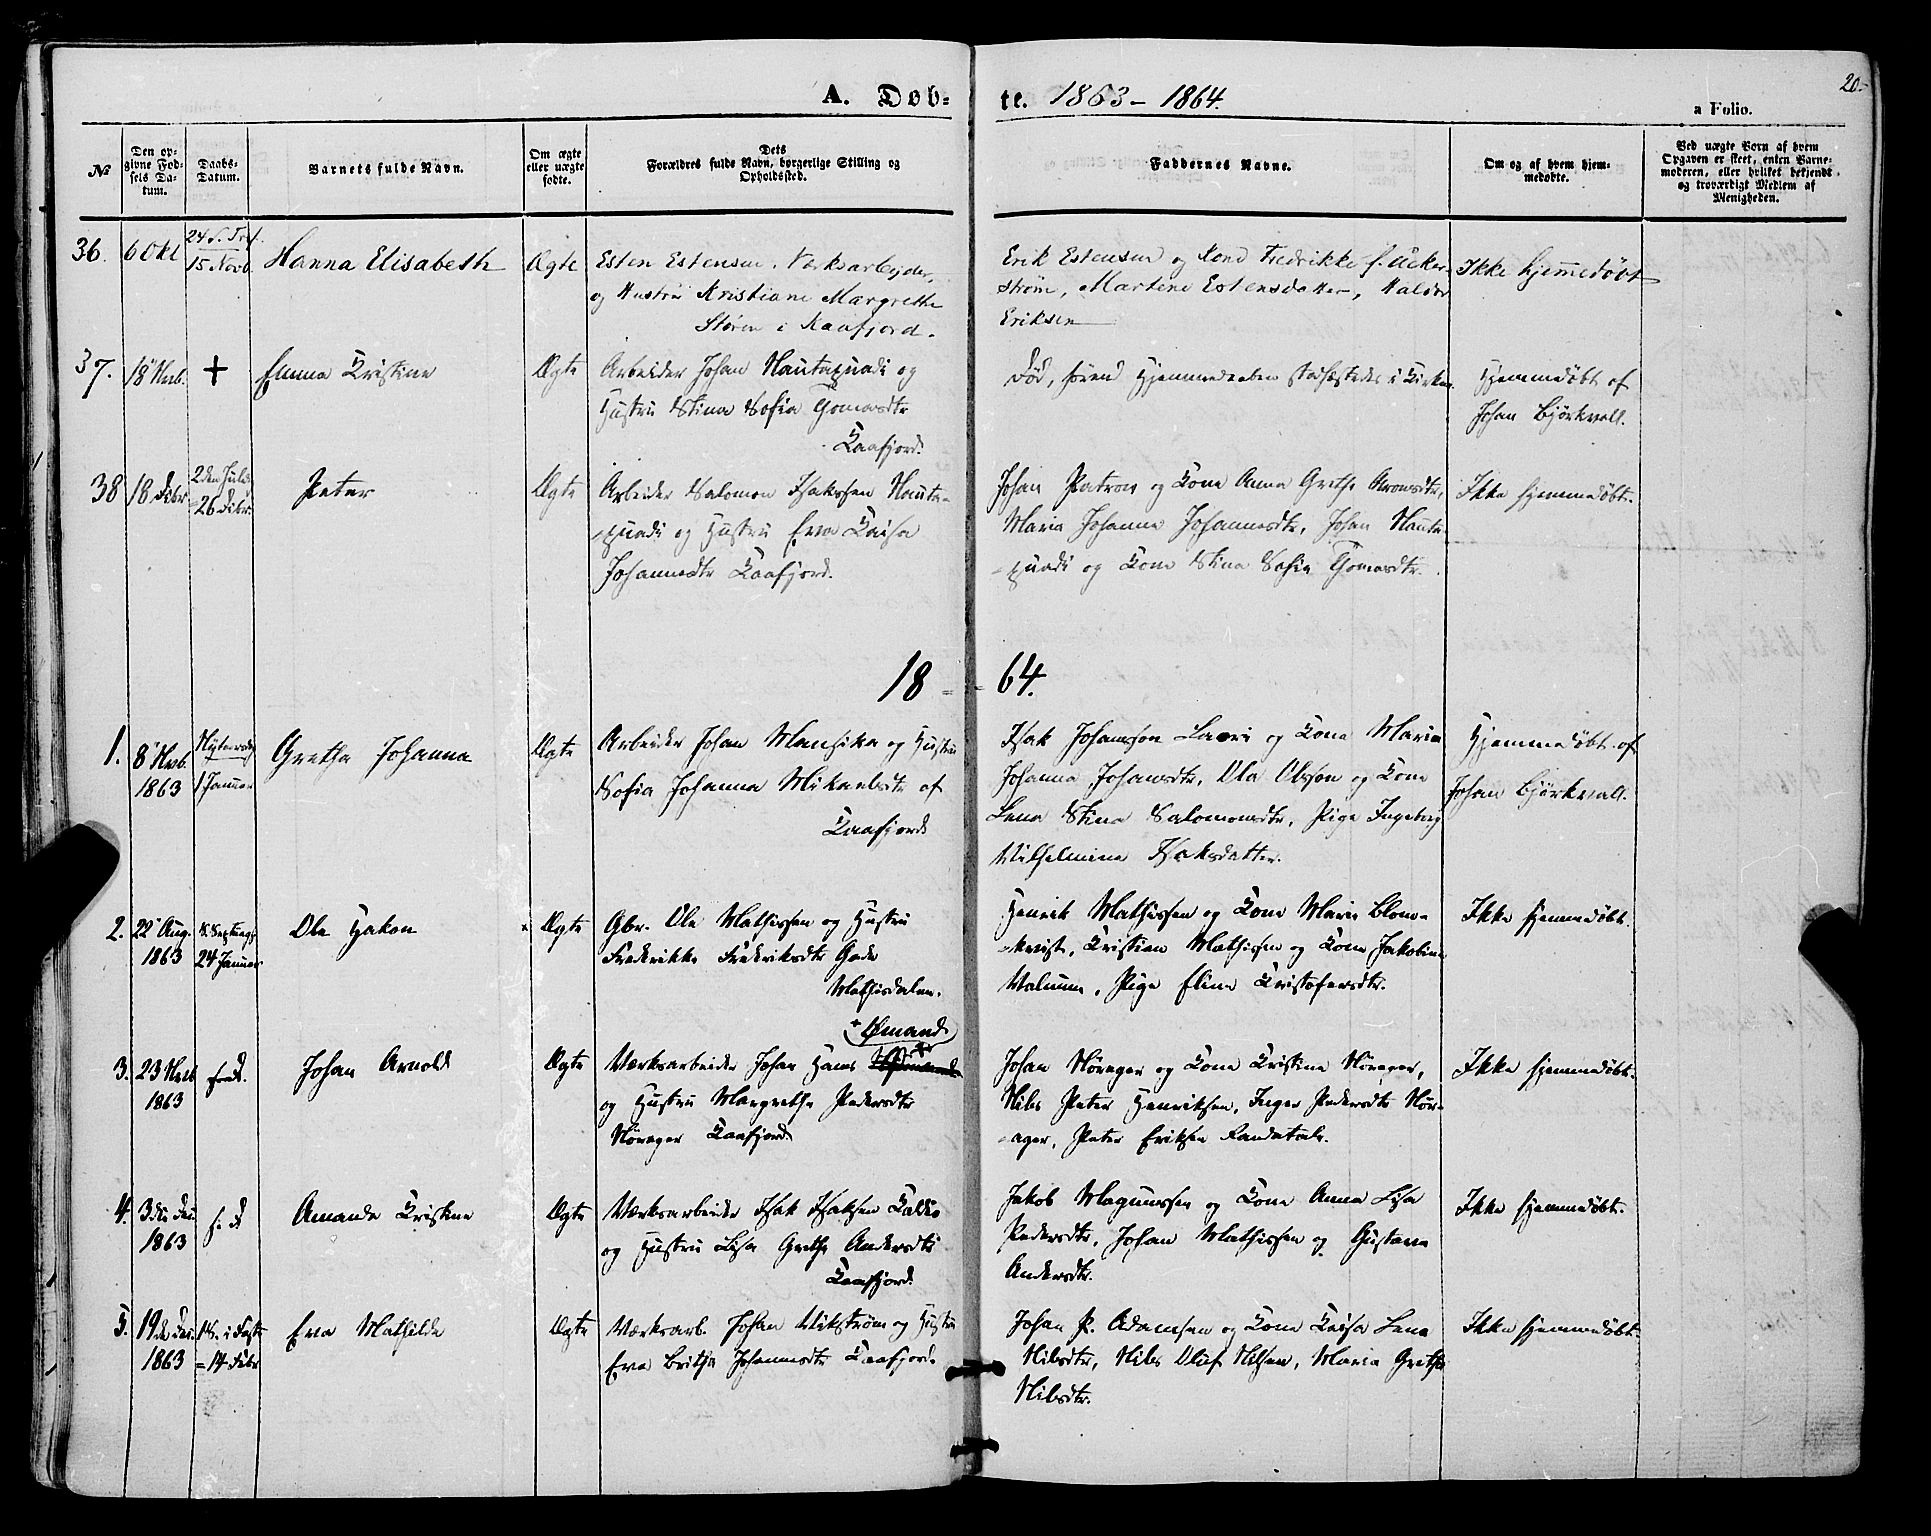 A. Døb-
te. 1863 - 1864.
20.
a Folio.
№
Den op-
givne Fød-
sels Da-
tum.
Daabs-
Datum.
Barnets fulde Navn.
Om ægte
eller uægte
fødte.
Dets
Forældres fulde Navn, borgerlige Stilling og
Opholdssted.
Faddernes Navne.
Om og af hvem hjem-
medøbte.
Ved uægte Børn af hvem
Opgaven er skeet, enten Barne-
moderen, eller hvilket bekjendt
og troværdigt Medlem af
Menigheden.
36. 6 Okt
24 S. Tref.
15 Novb.
Hanna Elisabeth
Ægte
Esten Estensen, Værksarbejder,
og Hustru Kristiane Margrethe
Støren i Kaafjord.
Erik Estensen og Kone Fredrikke f. Åcker-
strøm, Martine Estensdatter, Haldor
Eriksen
Ikke hjemmedøbt
37. 18 Novb. +
Emma Kristine
Ægte
Arbeider Johan Nautapuadi og
Hustru Stina Sofia Gomasdtr
Kaafjord.
Død, førend Hjemmedaaben stadfæstedes i Kirken.
Hjemmedøbt af
Johan Björkvall.
38 18 Debr
2den Juled.
26 Debr.
Peter
Ægte
Arbeider Salomon Isakssen Nauta-
puadi og Hustru Eva Kaisa
Johannesdtr Kaafjord.
Johan Patron og Kone Anna Grethe Aronsdtr,
Maria Johanna Johannesdtr, Johan Nauta-
-puadi og Kone Stina Sofia Gomasdtr.
Ikke hjemmedøbt.
18 - 64.
1. 8 Novb.
1863
Nytaarsdag
1 Januar
Gretha Johanna
Ægte
Arbeider Johan Mansika og Hustru
Sofia Johanna Mikaelsdtr af
Kaafjord
Isak Johanssen Lauri og Kone Maria
Johanna Johansdtr, Ola Olssen og Kone
Lena Stina Salomonsdtr, Pige Ingeborg
Wilhelmine Isaksdatter.
Hjemmedøbt af
Johan Björkvall.
2. 22 Aug.
1863
24 Januar
Ole Hakon
Ægte
Gbr. Ole Mathissen og Hustru
Frederikke Frederiksdtr Gade
Mathisdalen.
Henrik Mathissen og Kone Maria Blom-
-kvist, Kristian Mathissen og Kone Jakobine
Pige Eline Kristofersdtr.
Ikke hjemmedøbt.
3. 23 Novb
1863
s. d.
Johan Arnold
Ægte
+ Ømand
Værksarbeider Johan Hans
og Hustru Margrethe Pedersdtr
Nørager Kaafjord.
Johan Nørager og Kone Kristine Nørager,
Nils Peter Henriksen, Inger Pedersdtr Nør-
-ager, Peter Eriksen
Ikke hjemmedøbt.
4. 3die Dec.
1863
s. d
Amanda Kristine
Ægte
Værksarbeider Isak Isaksen Kaldio
og Hustru Lisa Grethe Andersdtr
Kaafjord.
Jakob Magnussen og Kone Anna Lisa
Pedersdtr, Johan Mathissen og Gustava
Andersdtr.
Ikke hjemmedøbt.
5. 19de Dec.
1863
1 S. i Faste
= 14 Febr
Eva Mathilde
Ægte
Værksarb. Johan Wikstrøm og Hustru
Eva Britha Johannesdtr Kaafjord.
Johan P. Adamsen og Kone Kaisa Lena
Nilsdtr, Nils Oluf Nilsen, Maria Grethe
Nilsdtr.
Ikke hjemmedøbt.